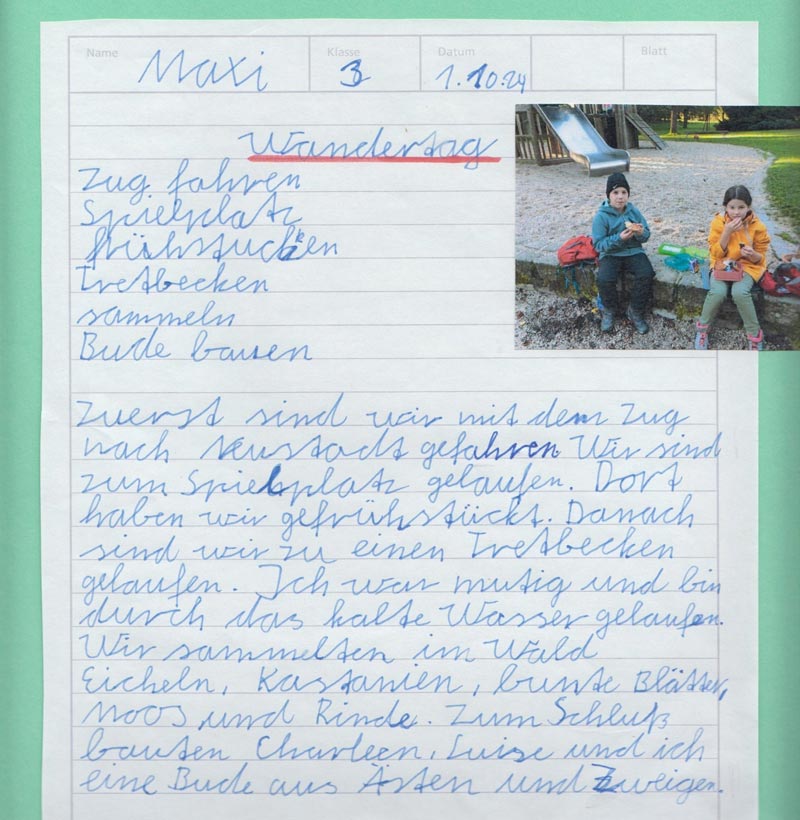 Name Klasse Datum Blatt
Maxi 3 1.10.24
Wandertag
Zug fahren
Spielplatz
frühstücken
Tretbecken
sammeln
Bude bauen
Zuerst sind wir mit dem Zug
nach Neustadt gefahren Wir sind
zum Spielplatz gelaufen. Dort
haben wir gefrühstückt. Danach
sind wir zu einen Tretbecken
gelaufen. Ich war mutig und bin
durch das kalte Wasser gelaufen.
Wir sammelten im Wald
Eicheln, Kastanien, bunte Blätter,
Moos und Rinde. Zum Schluß
bauten Charleen, Luise und ich
eine Bude aus Ästen und Zweigen.